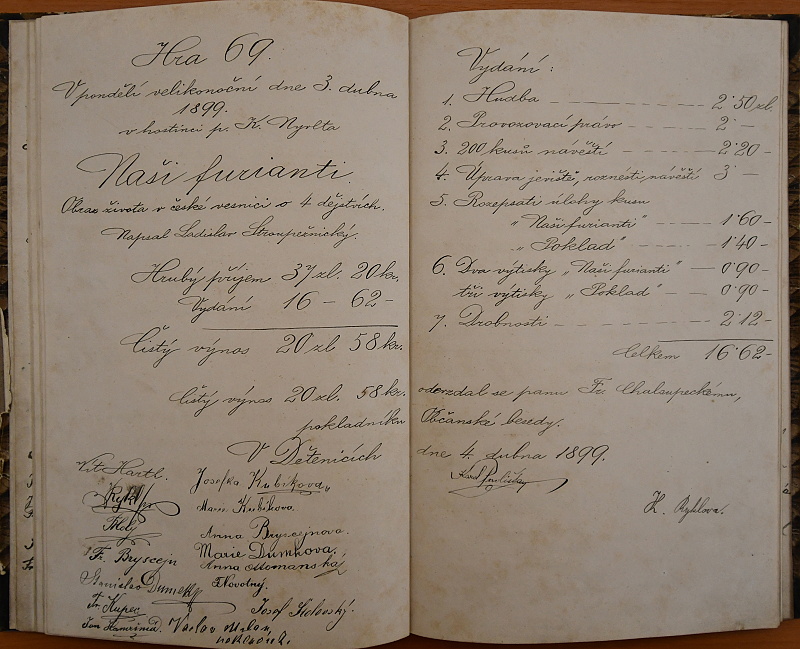 Hra 69.
V pondělí velikonoční dne 3. dubna
1899.
v hostinci p. K. Nyrlta
Naši furianti
Obraz života v české vesnici o 4 dějstvích.
Napsal Ladislav Stroupežnický.
Hrubý příjem 37 zl. 20 kr.
Vydání 16 – 62 –
Čistý výnos 20 zl 58 kr.
Čistý výnos 20 zl. 58 kr.
pokladníku
V Dětenicích
Vít. Hartl.
Josefka Kubíkova
Mam. Kubíkova.
Anna Bryscejnova.
Fr. Bryscejn
Marie Dumkova.
Anna Ottomanská
Stanislav Dumek
F. Novotný.
Fr. Kupec
Josef
Václav
Vydání:
1. Hudba – – – 2·50 zl.
2. Provozovací právo – – – 2· –
3. 200 kusů návěstí – – – 2·20 –
4. Úprava jeviště, roznésti návěstí 3 –
5. Rozepsati úlohy kusu
"Naši furianti" – – – 1·60 –
"Poklad" – – – 1·40 –
6. Dva výtisky "Naši furianti" – 0·90 –
tři výtisky "Poklad" – 0·90 –
7. Drobnosti – – – 2·12 –
Celkem 16·62 –
odevzdal se panu Fr. Chaloupeckému,
Občanské besedy.
dne 4. dubna 1899.
Karel
K. Rychlova.